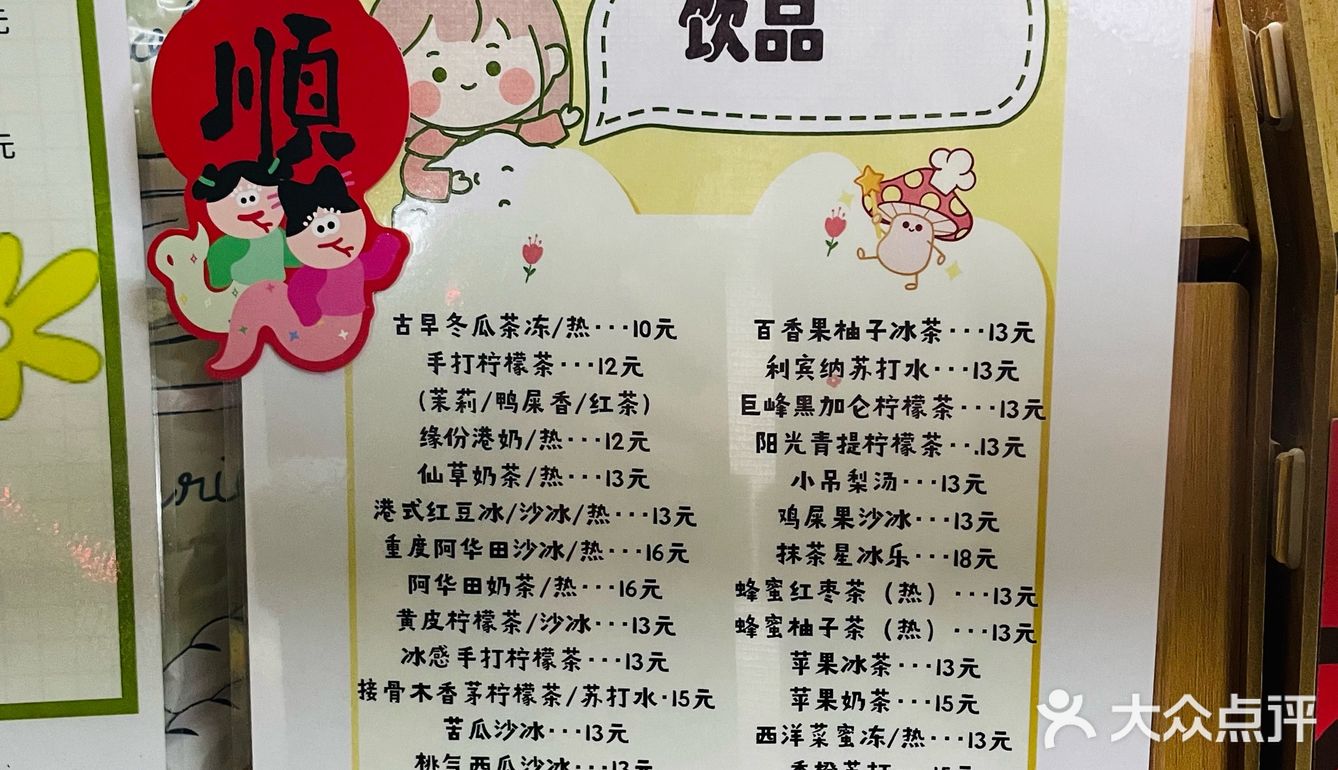 元
元
順
饮品
古早冬瓜茶冻/热···10元
手打柠檬茶···12元
(茉莉/鸭屎香/红茶)
缘份港奶/热···12元
仙草奶茶/热···13元
港式红豆冰/沙冰/热···13元
重度阿华田沙冰/热···16元
阿华田奶茶/热···16元
黄皮柠檬茶/沙冰···13元
冰感手打柠檬茶···13元
接骨木香茅柠檬茶/苏打水·15元
苦瓜沙冰···13元
桃气西瓜沙冰···13元
百香果柚子冰茶···13元
利宾纳苏打水···13元
巨峰黑加仑柠檬茶···13元
阳光青提柠檬茶··.13元
小吊梨汤···13元
鸡屎果沙冰···13元
抹茶星冰乐···18元
蜂蜜红枣茶（热）···13元
蜂蜜柚子茶（热）···13元
苹果冰茶···13元
苹果奶茶···15元
西洋菜蜜冻/热···13元
香橙苏打···15元
大众点评